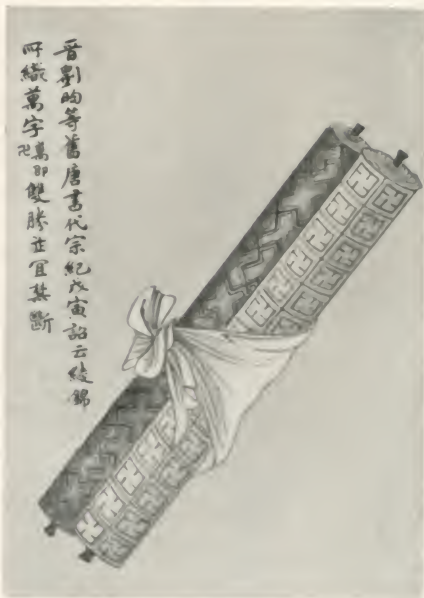 晉劉昫等舊唐書代宗紀戊寅詔云綾錦
所織萬字萬卽卍雙勝竝宜禁斷